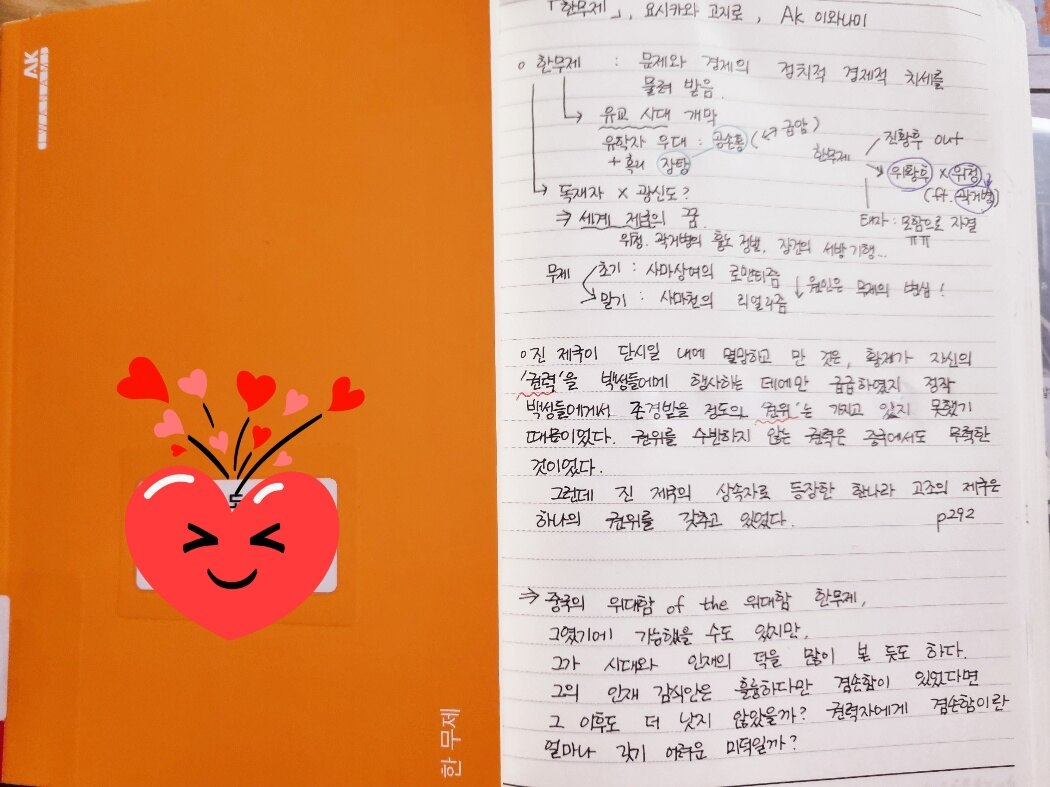 AK
한 무제
「한무제」, 요시카와 고지로, AK 이와나미
○ 한무제 : 문제와 경제의 정치적 경제적 치세를
물려 받음.
→ 유교 시대 개막
유학자 우대 : 공손홍 (↔ 급암)
+ 혹리 장탕
→ 독재자 × 광신도?
⇒ 세계 제국의 꿈
위청. 곽거병의 흉노 정벌, 장건의 서방기행...
한무제
진황후 out
위황후 × 위청
(ft. 곽거병)
태자 : 모함으로 자결
ㅠㅠ
무제
초기 : 사마상여의 로맨티즘
→ 말기 : 사마천의 리얼리즘
↓ 원인은 무제의 변심!
○ 진 제국이 단시일 내에 멸망하고 만 것은, 황제가 자신의
'권력'을 백성들에게 행사하는 데에만 급급하였지 정작
백성들에게서 존경받을 정도의 '권위'는 가지고 있지 못했기
때문이었다. 권위를 수반하지 않는 권력은 중국에서도 무력한
것이었다.
그런데 진 제국의 상속자로 등장한 한나라 고조의 제국은
하나의 권위를 갖추고 있었다. p292
⇒ 중국의 위대함 of the 위대함 한무제,
그였기에 가능했을 수도 있지만,
그가 시대와 인재의 덕을 많이 본 듯도 하다.
그의 인재 감식안은 훌륭하다만 겸손함이 있었다면
그 이후도 더 낫지 않았을까? 권력자에게 겸손함이란
얼마나 갖기 어려운 미덕일까?